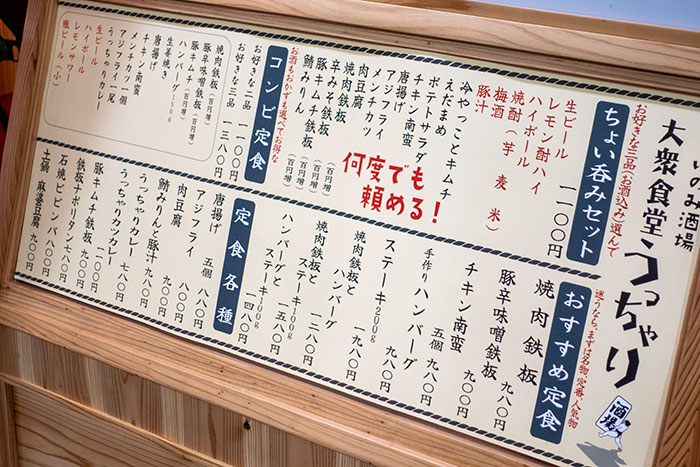 のみ酒場
大衆食堂うっちゃり
酒場
お好きな三品(お酒込み)選んで
ちょい呑みセット
一一〇〇円
生ビール
レモン酎ハイ
ハイボール
焼酎(芋 麦 米)
梅酒
豚汁
冷やっことキムチ
えだまめ
ポテトサラダ
チキン南蛮
唐揚げ
アジフライ
メンチカツ
肉豆腐
焼肉鉄板(百円増)
辛みそ鉄板(百円増)
豚キムチ鉄板(百円増)
鯖みりん(百円増)
何度でも
頼める!
お酒もおかずも選べてお得な
コンビ定食
お好きな二品 一一〇〇円
お好きな三品 一三八〇円
焼肉鉄板(百円増)
豚辛味噌鉄板(百円増)
豚キムチ(百円増)
ハンバーグ(百円増)
生姜焼き
唐揚げ
チキン南蛮
メンチカツ一個
アジフライ一尾
うっちゃりカレー
生ビール
ハイボール
レモンサワー
瓶ビール(小)
迷うなら、まずは名物、定番、人気物
おすすめ定食
焼肉鉄板 九八〇円
豚辛味噌鉄板 九八〇円
チキン南蛮 五個 九八〇円
手作りハンバーグ 九八〇円
ステーキ200g 一九八〇円
焼肉鉄板と
ハンバーグ 一二八〇円
焼肉鉄板と
ステーキ100g 一五八〇円
ハンバーグと
ステーキ100g 一四八〇円
定食各種
唐揚げ 五個 八八〇円
アジフライ 八八〇円
肉豆腐 九八〇円
鯖みりんと豚汁 九八〇円
うっちゃりカレー 七八〇円
うっちゃりカツカレー 九八〇円
豚キムチ鉄板 一一〇〇円
鉄板ナポリタン 八八〇円
石焼ビビンバ 八〇〇円
土鍋 麻婆豆腐 九〇〇円